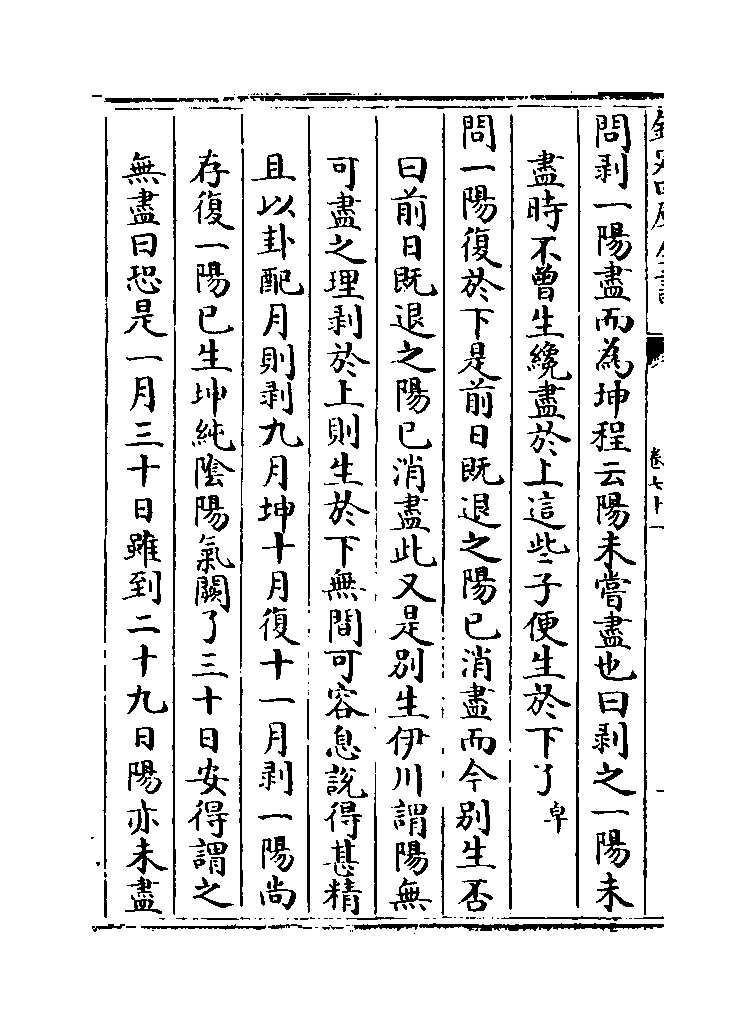 欽定四庫全書
卷七十一
問剥一陽盡而為坤程云陽未嘗盡也曰剥之一陽未
盡時不曾生纔盡於上這些子便生於下了卓
問一陽復於下是前日既退之陽已消盡而今别生否
曰前日既退之陽已消盡此又是别生伊川謂陽無
可盡之理剥於上則生於下無間可容息說得甚精
且以卦配月則剥九月坤十月復十一月剥一陽尚
存復一陽已生坤純陰陽氣闕了三十日安得謂之
無盡曰恐是一月三十日雖到二十九日陽亦未盡